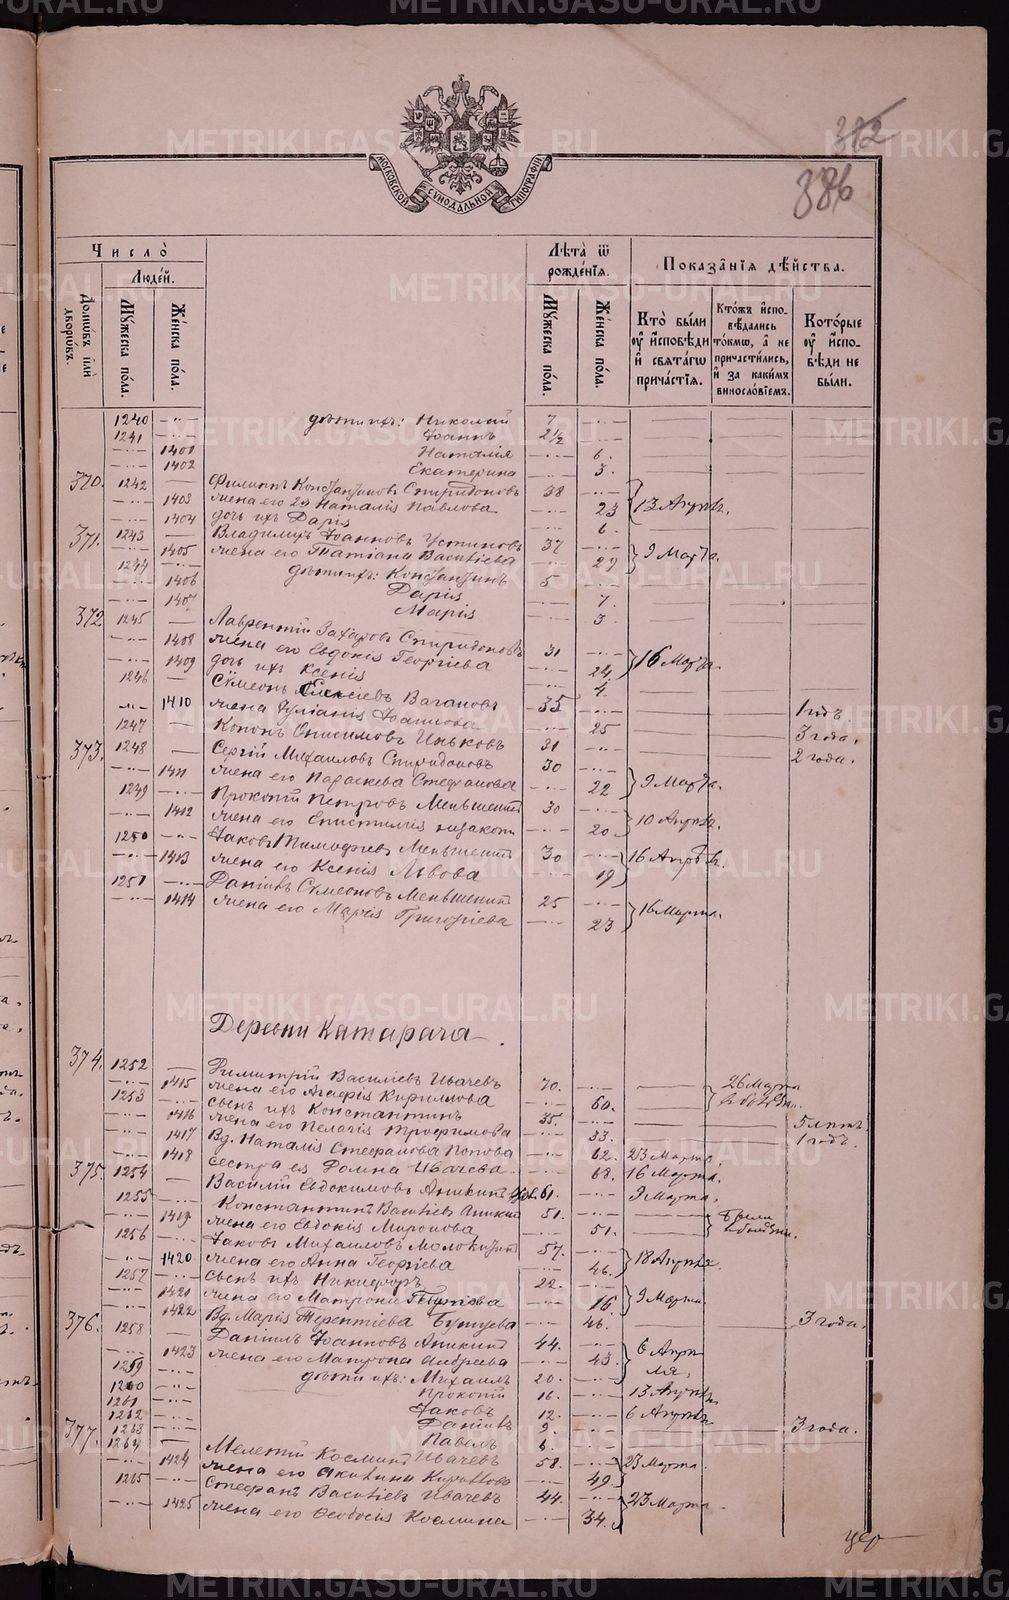 METRIKI.GASO-URAL.RU
382
386
МОСКОВСКОЙ СѴНОДАЛЬНОЙ ТИПОГРАФІИ
Число̀
Людей.
Домѡвъ или дворѡвъ.
Мꙋжеска пола.
Женска пола.
Лѣта ѿ рожденїѧ.
Мꙋжеска пола.
Женска пола.
Показанїѧ дѣйства.
Кто были ᲂу исповѣди и свѧтагѡ причастїѧ.
Ктожъ исповѣдались токмѡ, а не причастились, и за какимъ винословїемъ.
Которые ᲂу исповѣди не были.
1240 дѣти ихъ: Николай 7
1241 Іоаннъ 2½
1401 Наталія 6.
1402 Екатерина 3.
370. 1242 Филиппъ Константиновъ Спиридоновъ 38
1403 жена его 2я Наталія Павлова 23 13 Апрѣля.
1404 дочь ихъ Дарія 6.
371. 1243 Владимиръ Іоанновъ Устиновъ 37
1405 жена его Татіана Васильева 29 9 Марта.
1244 дѣти ихъ: Константинъ 5
1406 Дарія 7.
1407 Марія 3.
372. 1245 Лаврентій Захаровъ Спиридоновъ 31
1408 жена его Евдокія Георгіева 24. 16 Марта.
1409 дочь ихъ Ксенія 4.
1246 Сѵмеонъ Алексіевъ Вагановъ 35 1 годъ.
1410 жена Іуліанія Іоаннова 25 3 года.
1247 Кононъ Онисимовъ Иньковъ 31 2 года.
373. 1248 Сергій Михаиловъ Спиридоновъ 30
1411 жена его Параскева Стефанова 22 9 Марта.
1249 Прокопій Петровъ Меньшенинъ 30
1412 жена его Епистимія 20 10 Апрѣля.
1250 Іаковъ Тимофеевъ Меньшенинъ 30 16 Апрѣля.
1413 жена его Ксенія Львова 19
1251 Даніилъ Сѵмеоновъ Меньшенинъ 25
1414 жена его Марія Григоріева 23 16 Марта.
Деревни Катарача.
374. 1252 Димитрій Василіевъ Ивачевъ 70. 26 Марта
1415 жена его Агафія Кирилова 60.
1253 сынъ ихъ Константинъ 35. 5 лѣтъ
1416 жена его Пелагія Трофимова 33. 1 годъ.
1417 Вд. Наталія Стефанова Попова 62. 23 Марта.
1418 сестра ея Домна Ивачева 68. 16 Марта.
375. 1254 Василій Евдокимовъ Аникинъ 61. 9 Марта.
1255 Константинъ Васильевъ Аникинъ 51.
1419 жена его Евдокія Миронова 51.
1256 Іаковъ Михаиловъ 57.
1420 жена его Анна Георгіева 46. 18 Апрѣля.
1257 сынъ ихъ Никифоръ 22.
1421 жена его Матрона 16. 9 Марта.
1422 Вд. Марія Терентіева 46. 3 года.
376. 1258 Даніилъ Іоанновъ Аникинъ 44.
1423 жена его Матрона Андреева 43. 6 Апрѣля.
1259 дѣти ихъ: Михаилъ 20.
1260 Прокопій 16. 13 Апрѣля
1261 Іаковъ 12. 6 Апрѣля
1262 Даніилъ 9. 3 года.
1263 Павелъ 6.
377. 1264 Мелетій Космин Ивачевъ 58.
1424 жена его Акилина Кирилова 49. 23 Марта.
1265 Стефанъ Васильевъ Ивачевъ 44.
1425 жена его Ѳеодосія Космина 34. 23 Марта.
цер